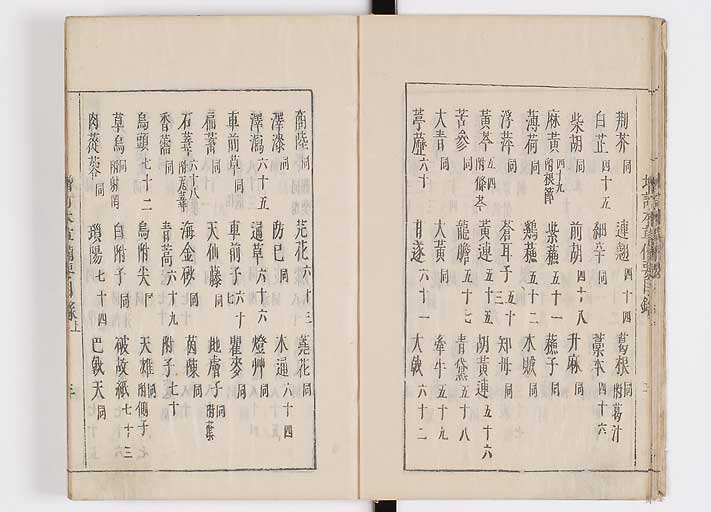 荆芥同 連翹四十四 葛根同附葛汁
白芷四十五 細辛同 藁本四十六
柴胡同 前胡四十八 升麻同
麻黃四十九附根節 紫蘇五十一 蘇子同
薄荷同 鷄蘇五十二 水蘇同
浮萍同 蒼耳子五十三 知母同
黃芩五四附條芩 黃連五十五 胡黃連五十六
苦參同 龍膽五十七 青黛五十八
大青同 大黃同 牽牛五十九
葶藶六十 甘遂六十一 大戟六十二
商陸同 芫花六十三 蕘花同
澤漆同 防已同 木通六十四
澤瀉六十五 通草六十六 燈艸同
車前草同 車前子六十七 瞿麥同
萹蓄同 天仙藤同 地膚子同附葉
石韋六十八附瓦韋 海金砂同 茵蔯同
香薷同 青蒿六十九 附子七十
烏頭七十二 烏附尖同 天雄同附側子七
草烏同附射罔 白附子同 破故紙七十三
肉蓯蓉同 瑣陽七十四 巴戟天同